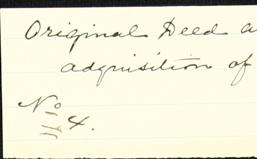 Original Deed a
adquisition of
No 4.